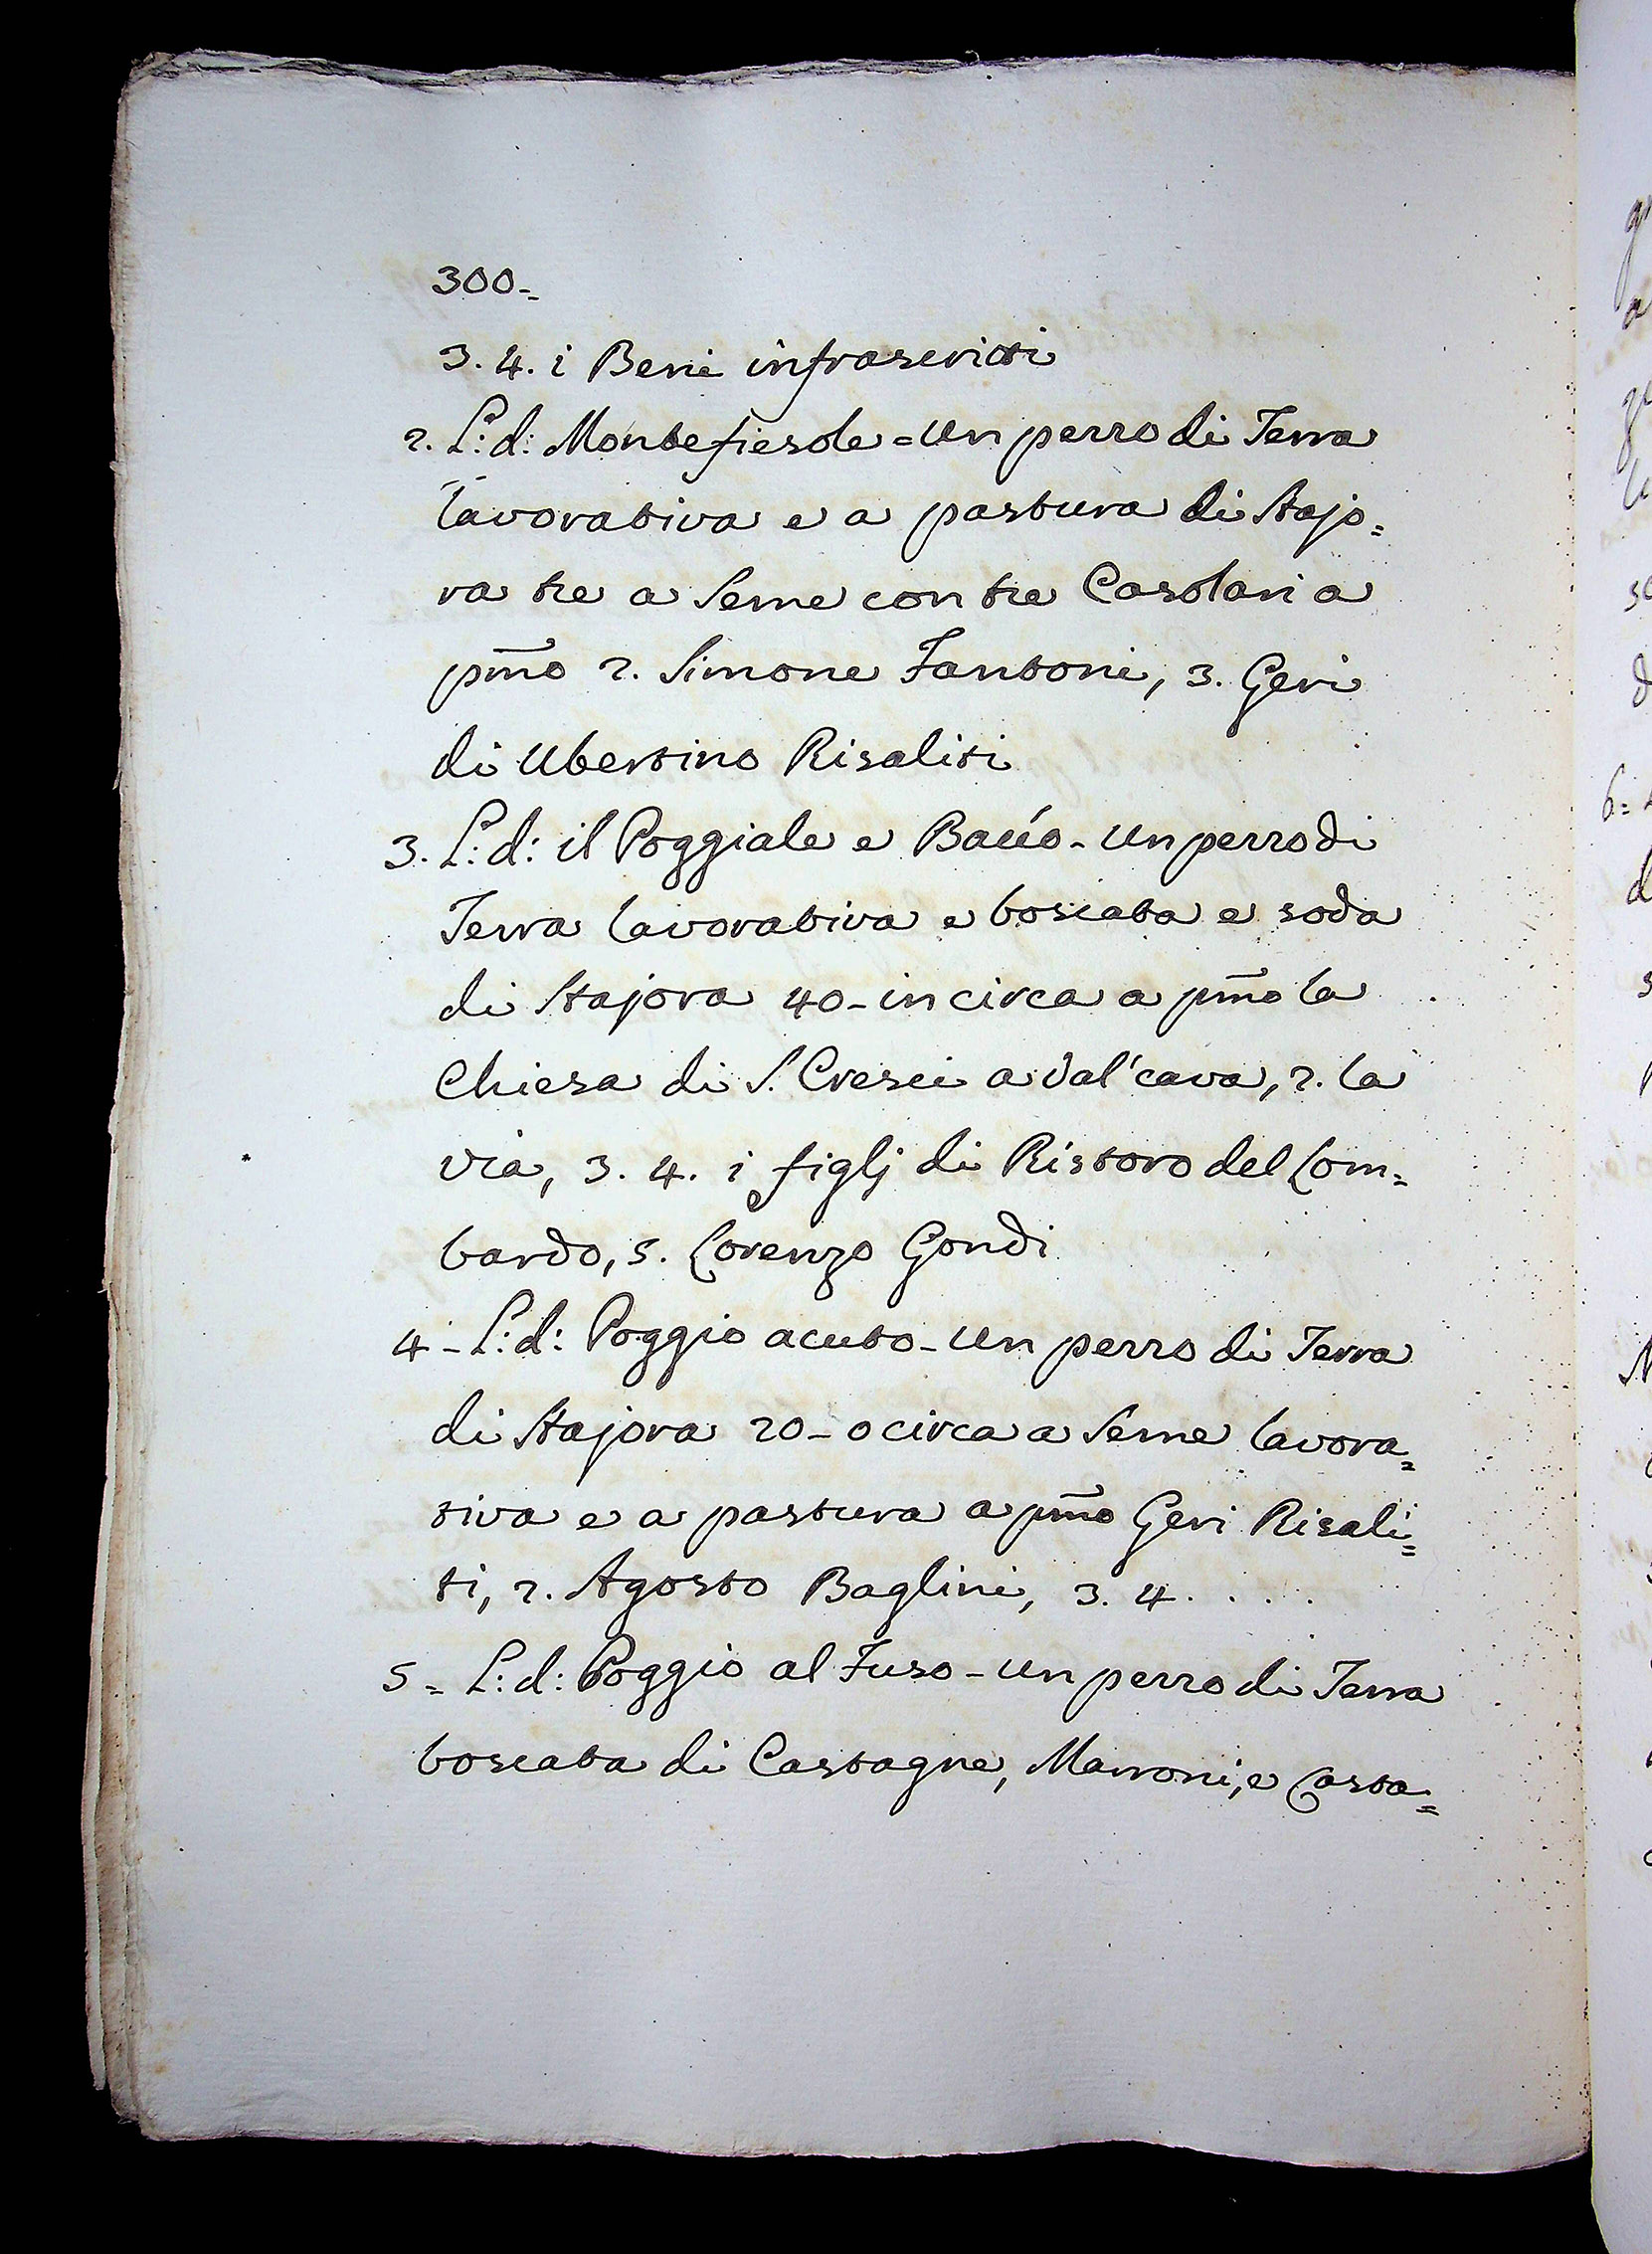 300=
3. 4. i Beni infrascritti
2. L: d: Montefiesole = Un pezzo di Terra
lavorativa e a pastura di Stajo=
ra tre a Seme con tre Casolari a
pm̃o 2. Simone Fantoni, 3. Geri
di Ubertino Risaliti
3. L: d: il Poggiale e - Un pezzo di
Terra lavorativa e boscata e soda
di Stajora 40 - in circa a pm̃o la
Chiesa di S. Cresci a Val'cava, 2. la
via, 3. 4. i figlj di Ristoro del Lom=
bardo, 5. Lorenzo Gondi
4 - L: d: Poggio acuto - Un pezzo di Terra
di Stajora 20 - o circa a Seme lavora=
tiva e a pastura a pm̃o Geri Risali=
ti, 2. Agosto Baglini, 3. 4. . . . .
5 = L: d: Poggio al Fuso - Un pezzo di Terra
boscata di Castagne, Marroni, e Casta=